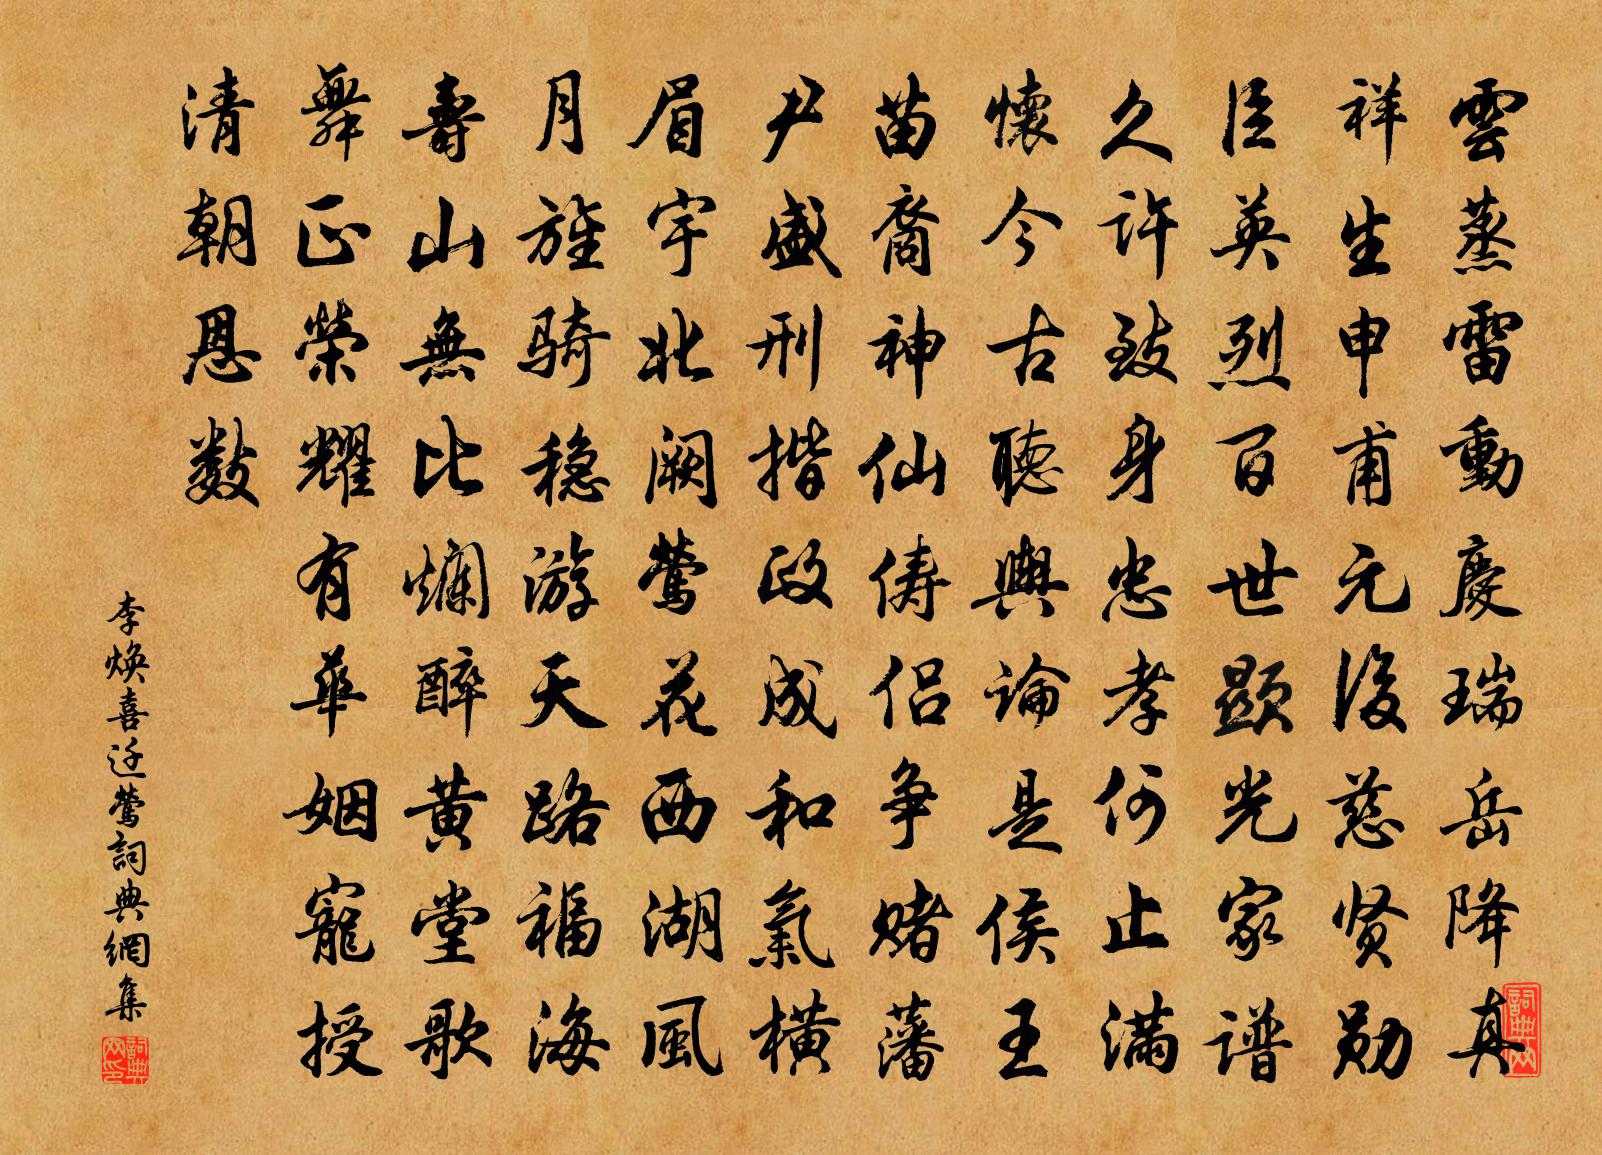 雲蒸雷動慶瑞岳降真
祥生申甫元後慈贤勋
臣英烈百世顯光家譜
久许致身忠孝何止滿
懷今古聽輿論是侯王
苗裔神仙俦侣争赌藩
尹盛刑措政成和氣橫
眉宇北阙莺花西湖風
月旌骑稳游天路福海
壽山無比爛醉黄堂歌
舞正榮耀有華姻寵授
清朝恩数
李焕喜迁鶯詞典網集
詞典网
詞典网印